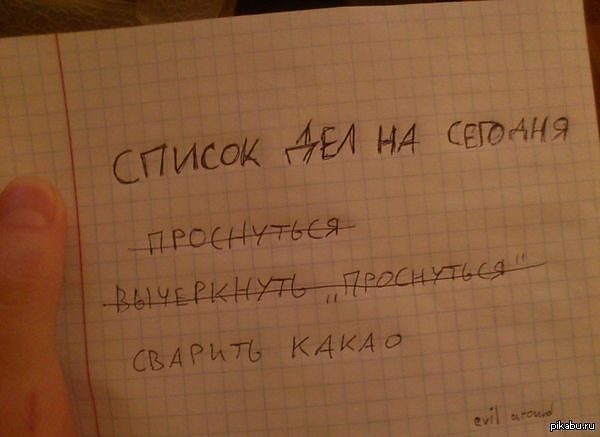 СПИСОК ДЕЛ НА СЕГОДНЯ
ПРОСНУТЬСЯ
ВЫЧЕРКНУТЬ „ПРОСНУТЬСЯ"
СВАРИТЬ КАКАО
evil around
pikabu.ru